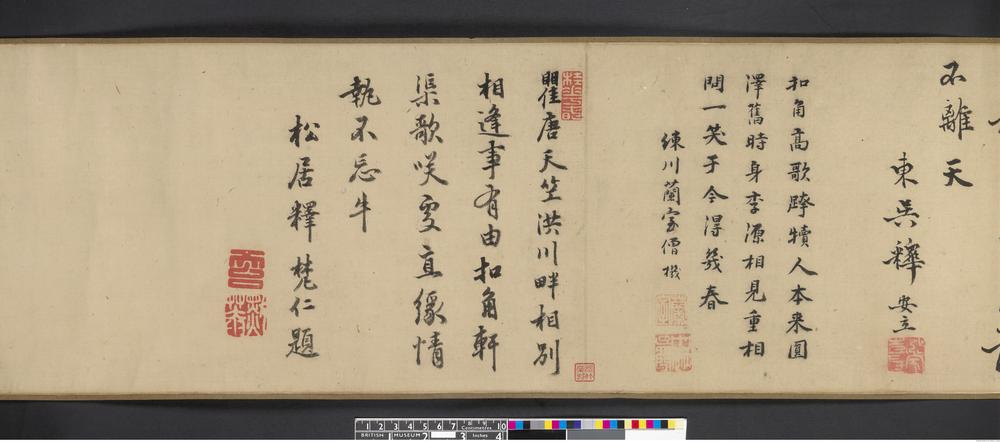 不離天
東吳釋安立
扣角高歌跨犢人本來圓
澤舊時身李源相見重相
問一笑于今得幾春
練川蘭室僧機
瞿唐天竺洪川畔相別
相逢事有由扣角軒
渠歌咲處直緣情
執不忘牛
松居釋梵仁題
1 2 3 4 5 6 7 8 9 10
Centimetres
BRITISH MUSEUM
2 3 4
Inches